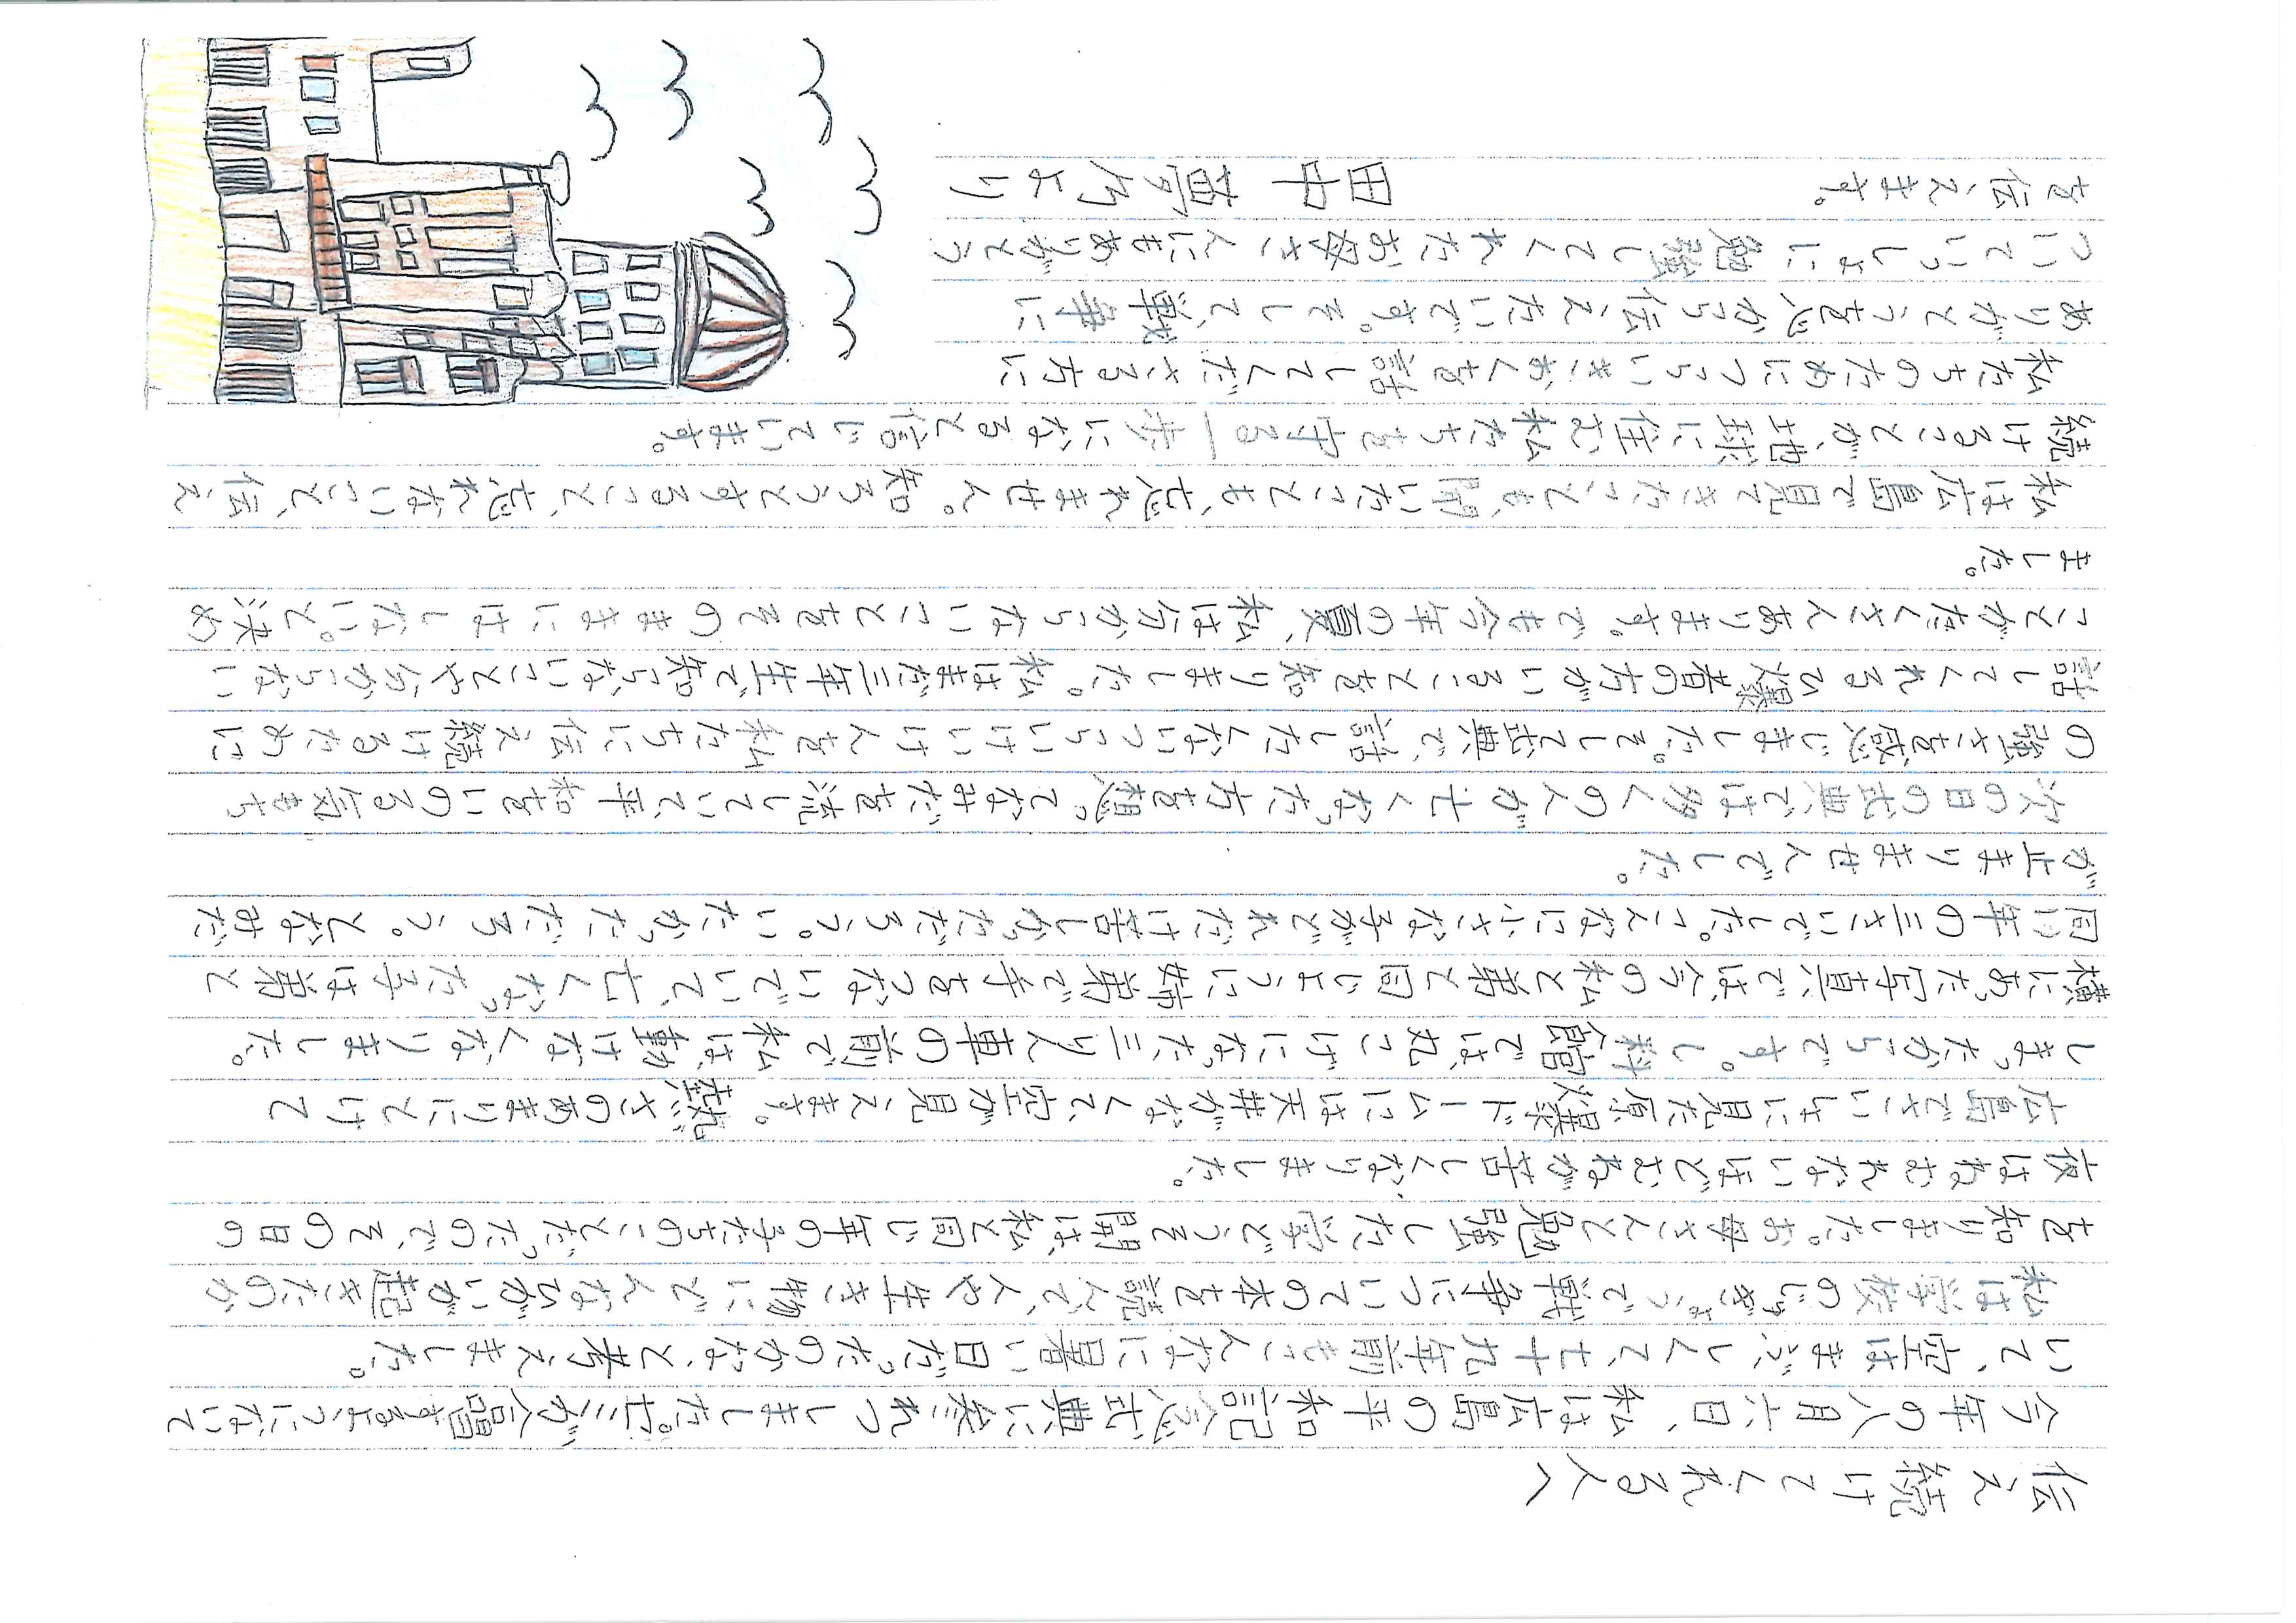 伝え続けてくれる人へ
今年の八月六日、私は広島の平和記念式典に参れつしました。セミが合唱するようにないて
いて、空はまぶしくて、七十九年前もこんなに暑い日だったのかな、と考えました。
私は学校のじゅぎょうで戦争についての本を読んで、人や生き物にどんなひがいが起きたのか
を知りました。お母さんと勉強した学どうそ開は、私と同じ年の子たちのことだったので、その日の
夜はねむれないほどむねが苦しくなりました。
広島でさいしょに見た原爆ドームには天井がなくて、空が見えます。熱さのあまりにとけて
しまったからです。し料館では、丸こげになった三りん車の前で私は、動けなくなりました。
横にあった写真では、今の私と弟と同じように姉弟で手をつないでいて、亡くなった子は弟と
同い年の三さいでした。こんなに小さな子がどれだけ苦しかっただろう。いたかっただろう。となみだ
が止まりませんでした。
次の日の式典では多くの人が亡くなった方を想ってなみだを流していて、平和をいのる気持ち
の強さを感じました。そして式典で、話したくないつらいけいけんを私たちに伝え続けるために
話してくれるひ爆者の方がいることを知りました。私はまだ三年生で知らないことや分からない
ことがたくさんあります。でも今年の夏、私は分からないことをそのままにはしない。と決め
ました。
私は広島で見てきたことも、聞いたことも、忘れません。知ろうとすること、忘れないこと、伝え
続けることが、地球に住む私たちを守る一歩になると信じています。
私たちのためにつらいきおくを話してくださる方に
ありがとうを心から伝えたいです。そして、戦争に
ついていっしょに勉強してくれたお母さんにもありがとう
を伝えます。
田中 より